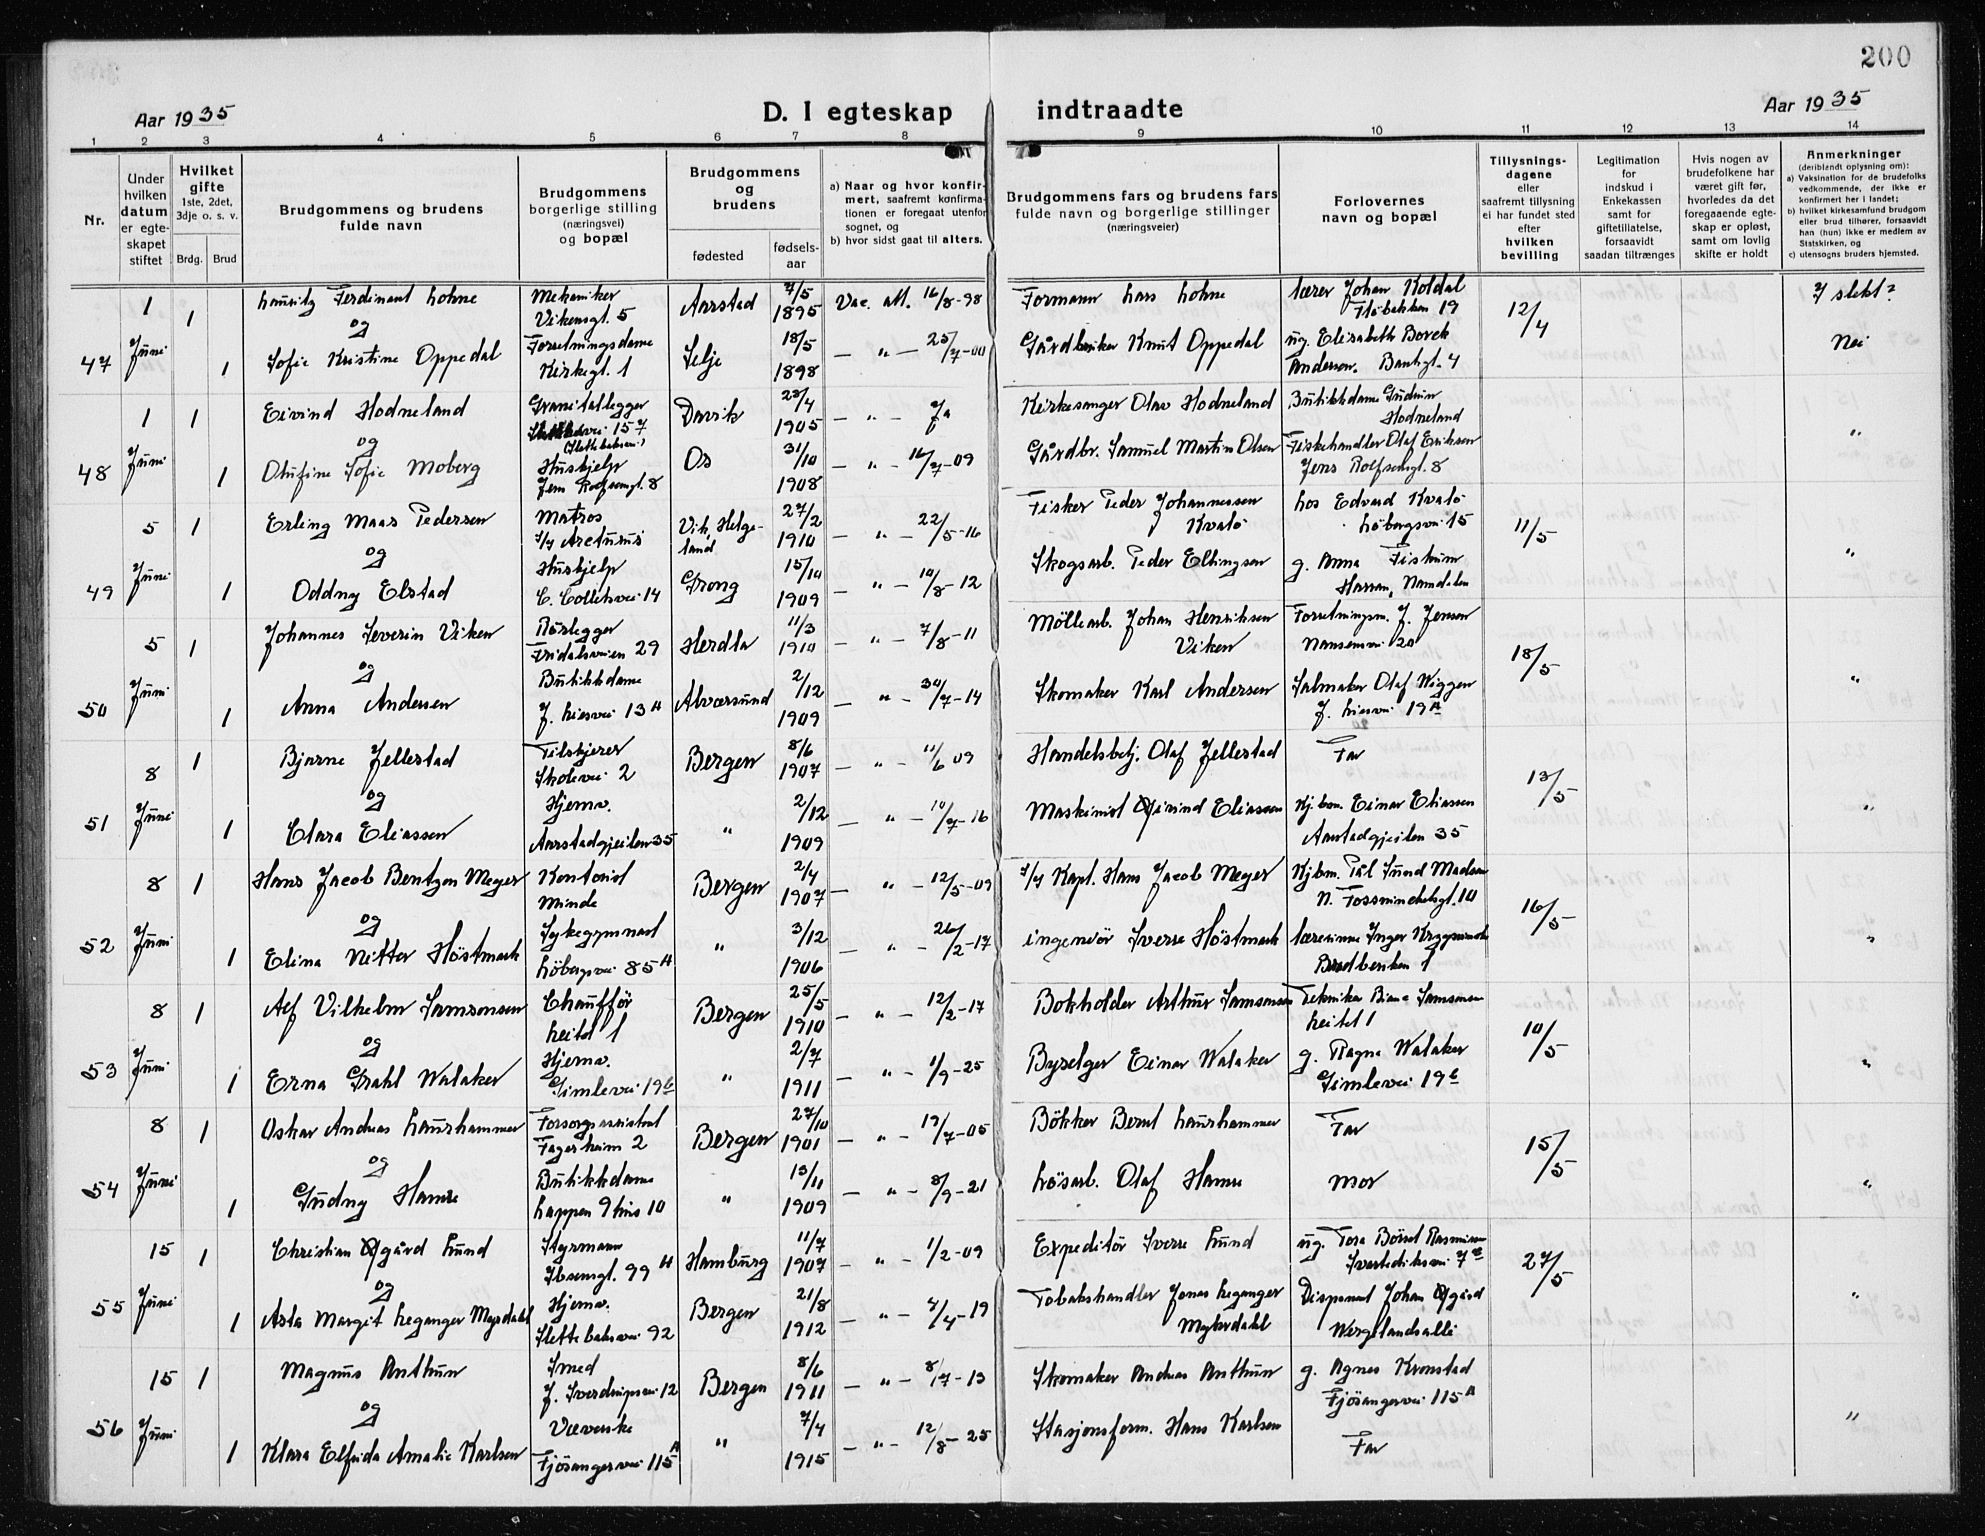 200
Aar 1935
D. I egteskap indtraadte
Aar 1935
1 2 3 4 5 6 7 8 9 10 11 12 13 14
Nr.
Under hvilken datum er egteskapet stiftet
Hvilket gifte 1ste, 2det, 3dje o. s. v.
Brdg. Brud
Brudgommens og brudens fulde navn
Brudgommens borgerlige stilling (næringsvei) og bopæl
Brudgommens og brudens
fødested
fødsels-aar
a) Naar og hvor konfirmert, saafremt konfirmationen er foregaat utenfor sognet, og
b) hvor sidst gaat til alters.
Brudgommens fars og brudens fars fulde navn og borgerlige stillinger (næringsveier)
Forlovernes navn og bopæl
Tillysningsdagene eller saafremt tillysning ei har fundet sted efter hvilken bevilling
Legitimation for indskud i Enkekassen samt for giftetillatelse, forsaavidt saadan tiltrænges
Hvis nogen av brudefolkene har været gift før, hvorledes da det foregaaende egteskap er opløst, samt om lovlig skifte er holdt
Anmerkninger (deriblendt oplysning om):
a) Vaksination for de brudefolks vedkommende, der ikke er konfirmert her i landet;
b) hvilket kirkesamfund brudgom eller brud tilhører, forsaavidt han (hun) ikke er medlem av Statskirken, og
c) utensogns bruders hjemsted.
47 1 Juni 1 Lauritz Ferdinant Lohne Mekaniker Vikensgt. 5 Aarstad 7/5 1895 Vac. att. 16/8-98 Formann Lars Lohne Lærer Johan Koldal Flöbakken 19 12/4 I slekt?
og
1 Sofie Kristine Oppedal Forretningsdame Kirkegt. 1 Selje 18/5 1898 — " — 25/7-00 Gårdbruker Knut Oppedal ug. Elisabeth Borck Andersen. 4 Nei
48 1 Juni 1 Eivind Hodneland 157 (Slettebakken) Davik 23/4 1905 — " — Ja Kirkesanger Olav Hodneland Butikkdame Gudrun Hodneland
og
1 Olufine Sofie Moberg Huskjelp Jens Rolfsensgt. 8 Os 31/10 1908 — " — 16/7-09 Gårdbr. Samuel Martin Olsen Fiskehandler Olaf Eriksen Jens Rolfsensgt. 8 "
49 5 Juni 1 Erling Maas Pedersen Matros s/s Arcturus Vik, Helgeland 27/2 1910 — " — 22/5-16 Fisker Peder Johannessen Kvalö hos Edvard Kvalö Löbergsvei 15 11/5
og
1 Oddny Elstad Huskjelp C. Collettsvei 14 Grong 15/10 1909 — " — 10/8-12 Skogsarb. Peder Ellingsen g. Anna Fiskum Harran, Namdalen "
50 5 Juni 1 Johannes Severin Viken Rörlegger Fridalsveien 29 Herdla 11/3 1910 — " — 7/8-11 Möllearb. Johan Henriksen Viken Forretningsm. J. Jensen Nansensvei 20 18/5
og
1 Anna Andersen Butikkdame J. Liesvei 13A Alversund 2/12 1909 — " — 30/7-14 Skomaker Karl Andersen Salmaker Olaf Wiggen J. Liesvei 19A "
51 8 Juni 1 Bjarne Jellestad Tilskjerer Skolevei 2 Bergen 8/6 1907 — " — 11/6 09 Handelsbetj. Olaf Jellestad Far 13/5
og
1 Clara Eliassen Hjemv. Aarstadgjeilen 35 " 2/12 1909 — " — 10/7-16 Maskinist Eivind Eliassen Kjbm. Einar Eliassen Aarstadgjeilen 35 "
52 8 Juni 1 Hans Jacob Bentzon Meyer Kontorist Minde Bergen 2/4 1907 — " — 12/5-09 s/s Kapt. Hans Jacob Meyer Kjbm. Pål Sund Madsen N. Fosswinckelsgt. 10 16/5
og
1 Elina Nitter Höstmark Sykegymnast Löbergsvei 85A " 3/12 1906 — " — 26/2-17 ingeniör Sverre Höstmark Lærerinne Inger 1 "
53 8 Juni 1 Alf Vilhelm Samsonsen Chaufför Leitet 1 Bergen 25/5 1910 — " — 12/2-17 Bokholder Arthur Samsonsen Tekniker Samsonsen Leitet 1 10/5
og
1 Erna Grahl Walaker Hjemv. Gimlevei 19b " 2/7 1911 — " — 1/9-25 Byselger Einar Walaker g. Ragna Walaker Gimlevei 19b "
54 8 Juni 1 Oskar Andreas Laurhammer Forsorgsassistent Fagerheim 2 Bergen 27/10 1901 — " — 19/7-05 Bökker Bernt Laurhammer Far 15/5
og
1 Gudny Hamre Butikkdame Lappen 9 hus 10 " 13/11 1909 — " — 8/9-21 Lösarb. Olaf Hamre Mor "
55 15 Juni 1 Christian Ågård Lund Styrmann Ibsensgt. 99A Hamburg 11/7 1907 — " — 1/2-09 Expeditör Sverre Lund ug. Tora Börset Rasmussen Svartediksvei 7 27/5
og
1 Asta Margit Leganger Myrdahl Hjemv. Slettebaksvei 92 Bergen 21/8 1912 — " — 4/4-19 Tobakshandler Jonas Leganger Myhrdahl Disponent Johan Ågård Wergelandsallé "
56 15 Juni 1 Magnus Anthun Smed J. Sverdrupsvei 12 Bergen 8/6 1911 — " — 8/7-13 Skomaker Andreas Anthun g. Agnes Kronstad Fjösangervei 115A
og
1 Klara Elfrida Amalie Karlsen Væverske Fjösangervei 115A " 7/4 1915 — " — 12/8-25 Stasjonsform. Hans Karlsen Far "